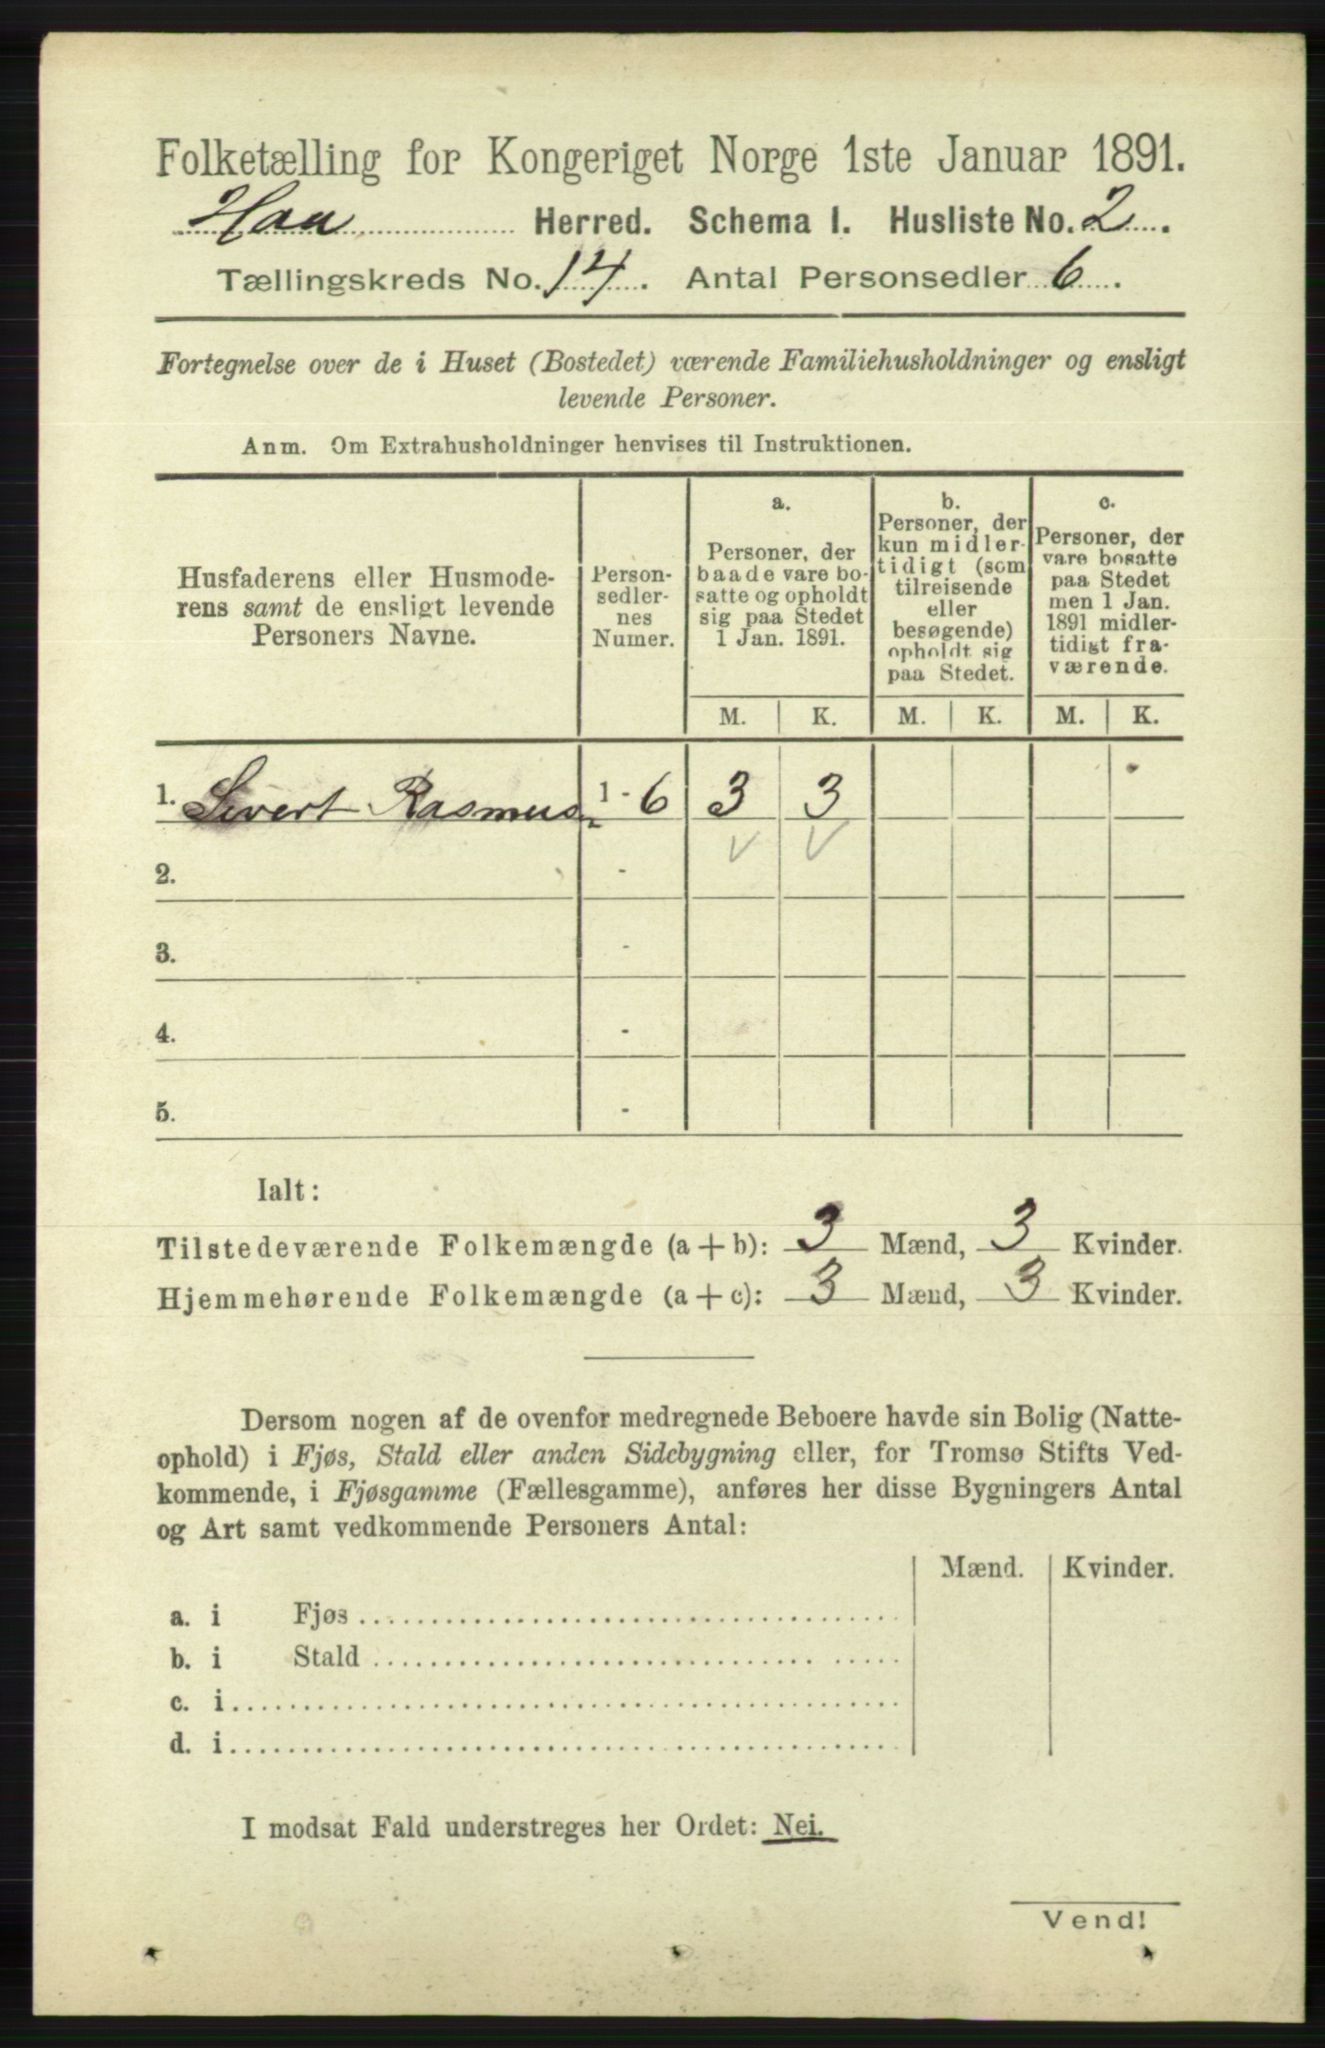 Folketælling for Kongeriget Norge 1ste Januar 1891.
Haa Herred. Schema I. Husliste No. 2.
Tællingskreds No. 14. Antal Personsedler 6.
Fortegnelse over de i Huset (Bostedet) værende Familiehusholdninger og ensligt
levende Personer.
Anm. Om Extrahusholdninger henvises til Instruktionen.
Husfaderens eller Husmode-
rens samt de ensligt levende
Personers Navne.
Person-
sedler-
nes
Numer.
a.
Personer, der
baade vare bo-
satte og opholdt
sig paa Stedet
1 Jan. 1891.
b.
Personer, der
kun midler-
tidigt (som
tilreisende
eller
besøgende)
opholdt sig
paa Stedet.
c.
Personer, der
vare bosatte
paa Stedet
men 1 Jan.
1891 midler-
tidigt fra-
værende.
M. K. M. K. M. K.
1. Sivert Rasmusn 1 - 6 3 3
2. -
3. -
4. -
5. -
Ialt:
Tilstedeværende Folkemængde (a + b): 3 Mænd, 3 Kvinder.
Hjemmehørende Folkemængde (a + c): 3 Mænd, 3 Kvinder.
Dersom nogen af de ovenfor medregnede Beboere havde sin Bolig (Natte-
ophold) i Fjøs, Stald eller anden Sidebygning eller, for Tromsø Stifts Ved-
kommende, i Fjøsgamme (Fællesgamme), anføres her disse Bygningers Antal
og Art samt vedkommende Personers Antal:
Mænd. Kvinder.
a. i Fjøs
b. i Stald
c. i
d. i
I modsat Fald understreges her Ordet: Nei.
Vend!